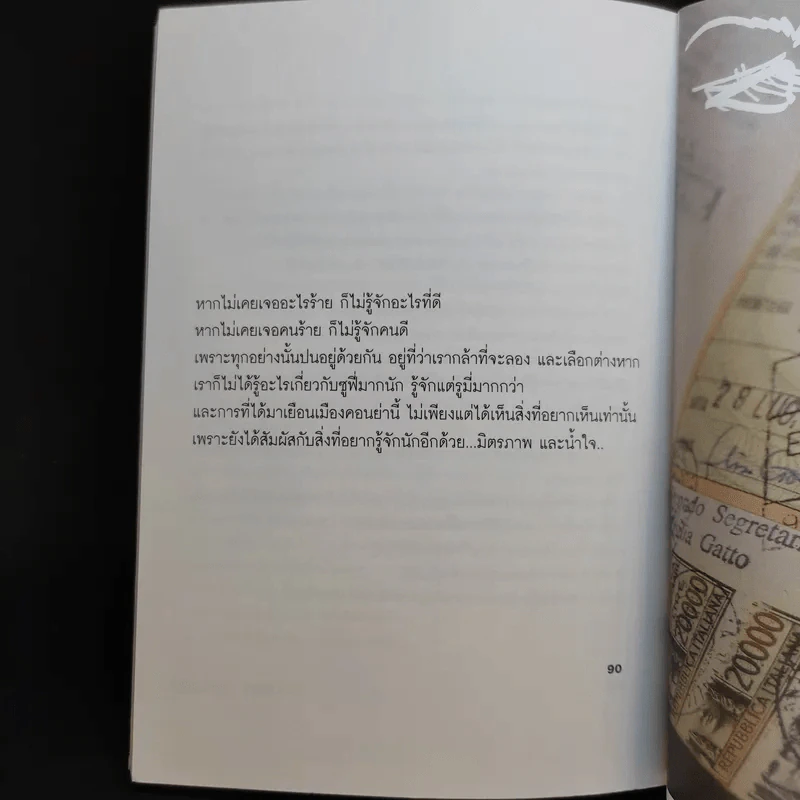 หากไม่เคยเจออะไรร้าย ก็ไม่รู้จักอะไรที่ดี
หากไม่เคยเจอคนร้าย ก็ไม่รู้จักคนดี
เพราะทุกอย่างนั้นปนอยู่ด้วยกัน อยู่ที่ว่าเรากล้าที่จะลอง และเลือกต่างหาก
เราก็ไม่ได้รู้อะไรเกี่ยวกับซูฟี่มากนัก รู้จักแต่รูมี่มากกว่า
และการที่ได้มาเยือนเมืองคอนย่านี้ ไม่เพียงแต่ได้เห็นสิ่งที่อยากเห็นเท่านั้น
เพราะยังได้สัมผัสกับสิ่งที่อยากรู้จักนักอีกด้วย...มิตรภาพ และน้ำใจ..
90
28 LUG.
Segretar
Gatto
20000
REPUBBLICA ITALIANA
20000
REPUBBLICA ITALIANA